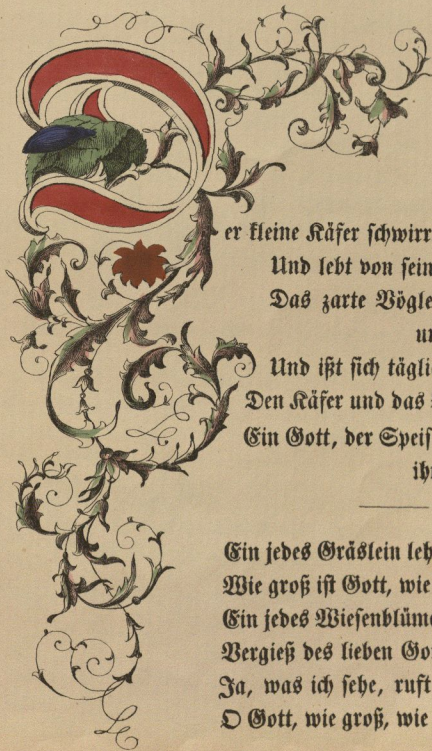 Der kleine Käfer schwirr
Und lebt von sein
Das zarte Vögle
un
Und ißt sich täglic
Den Käfer und das
Ein Gott, der Speis
ih
Ein jedes Gräslein leh
Wie groß ist Gott, wie
Ein jedes Wiesenblüm
Vergieß des lieben Go
Ja, was ich sehe, ruft
O Gott, wie groß, wie